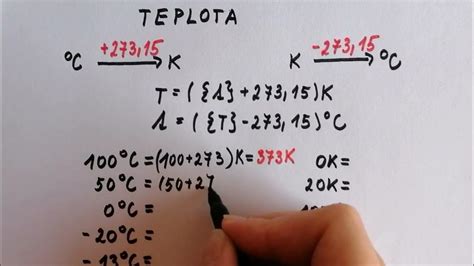 TEPLOTA
°C +273,15 → K    K -273,15 → °C
T = ({t} + 273,15) K
t = ({T} - 273,15) °C
100°C = (100+273) K = 373K    0K =
50°C = (50+27    20K =
0°C =
-20°C =
-13°C =